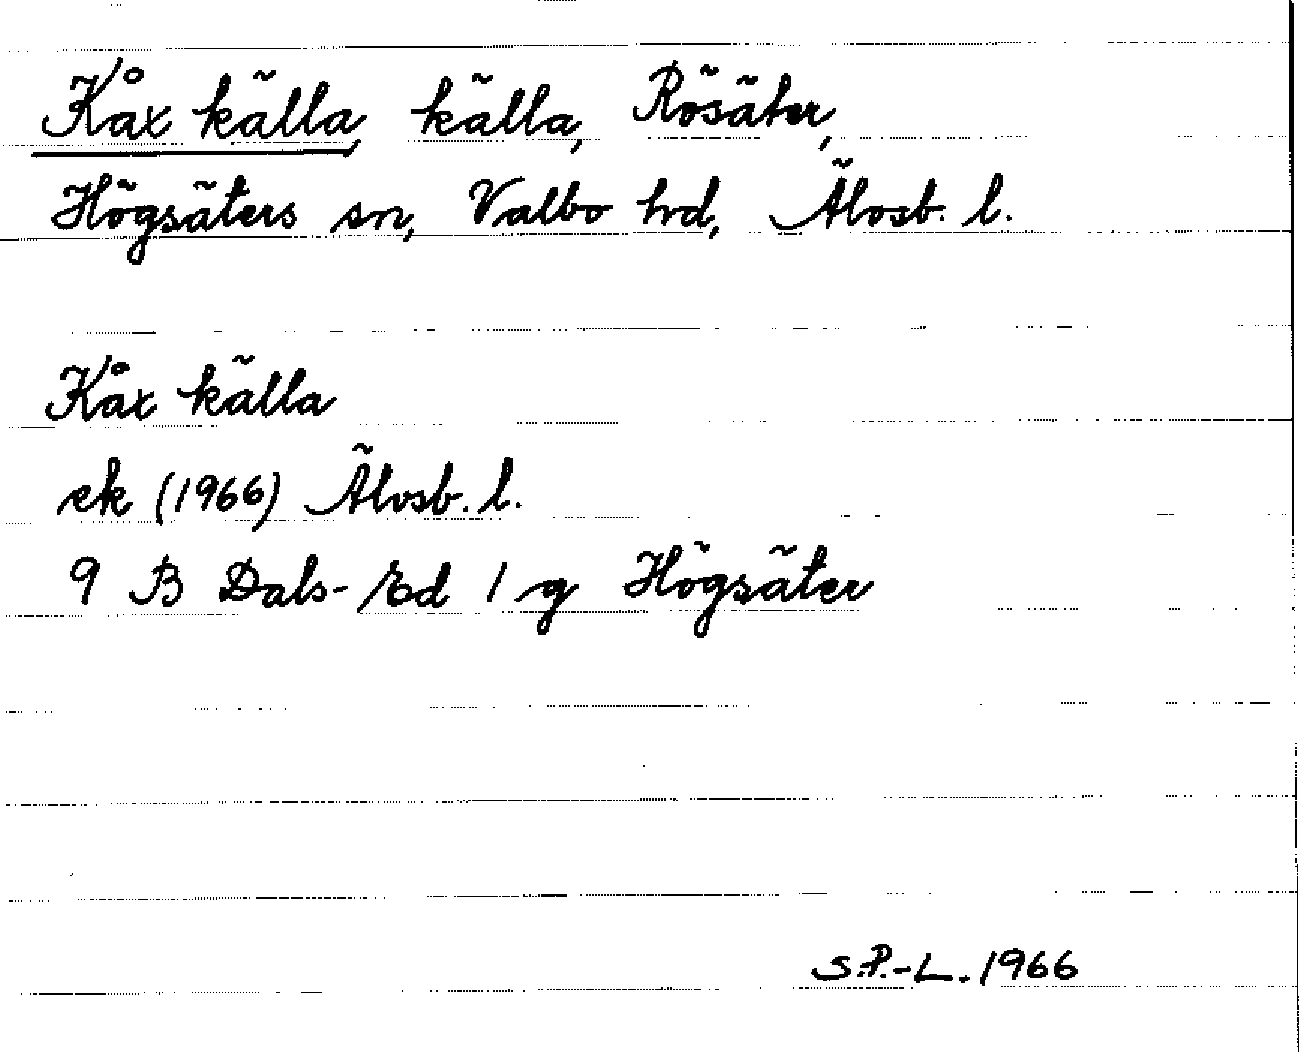 Kåx källa, källa, Rösäter,
Högsäters sn, Valbo hd, Älvsb. l.
Kåx källa
ek (1966) Älvsb. l.
9 B Dals-Ed 1 g Högsäter
S.P.-L. 1966